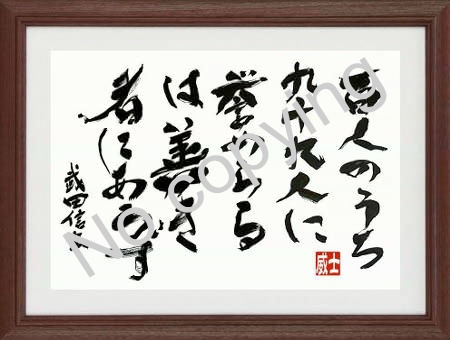 百人のうち
九十九人に
誉めらる
は善き
者にあらず
武田信玄
威士
No copying